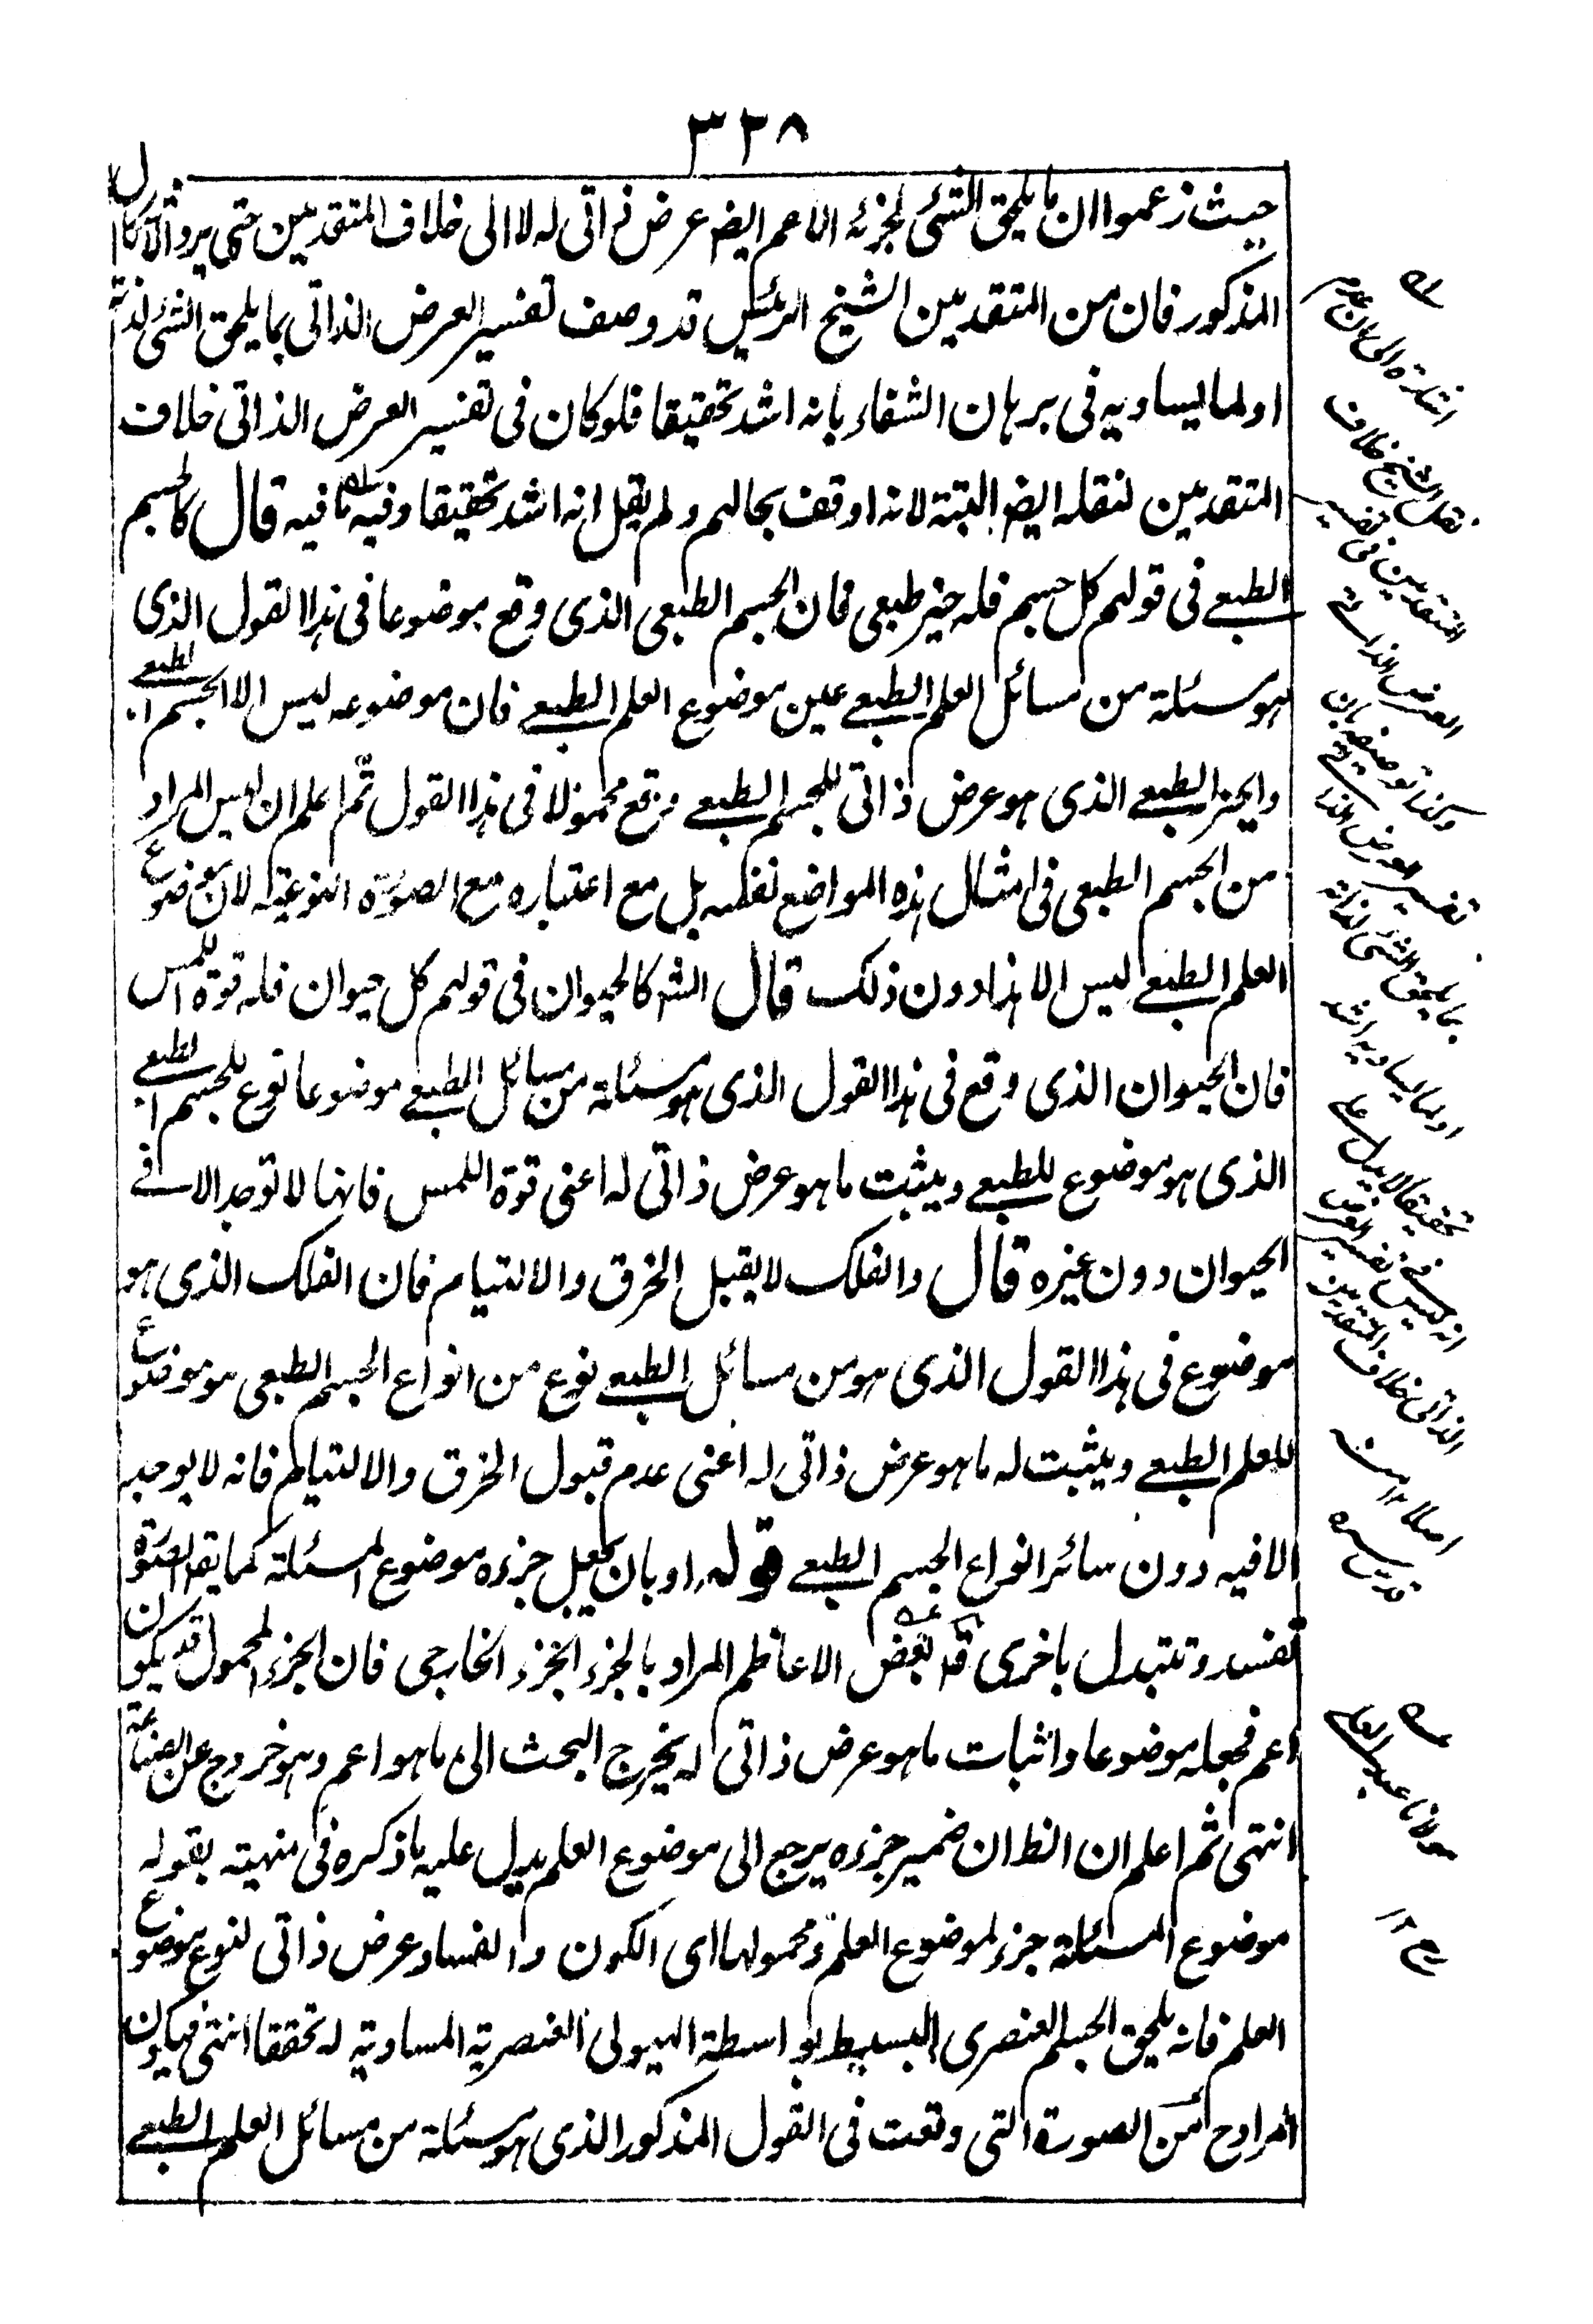 ٣٢٨
حيث زعموا ان ما يلحق الشئ لجزئه الاعم ايضا عرض ذاتى له لا الى خلاف المتقدمين حتى يرد الاشكال
المذكور فان من المتقدمين الشيخ الرئيس قد وصف تفسير العرض الذاتى بما يلحق الشئ لذاته
او لما يساويه فى برهان الشفاء بانه اشد تحقيقا فلو كان فى تفسير العرض الذاتى خلاف
المتقدمين لنقله ايضا البتة لانه اوقف بحالهم ولم يقل انه اشد تحقيقا وفيه ما فيه قال كالجسم
الطبعى فى قولهم كل جسم فله حيز طبعى فان الجسم الطبعى الذى وقع موضوعا فى هذا القول الذى
هو مسئلة من مسائل العلم الطبعى عين موضوع العلم الطبعى فان موضوعه ليس الا الجسم الطبعى
والحيز الطبعى الذى هو عرض ذاتى للجسم الطبعى وقع محمولا فى هذا القول ثم اعلم ان ليس المراد
من الجسم الطبعى فى امثال هذه المواضع نفسه بل مع اعتباره مع الصورة النوعية لان موضوع
العلم الطبعى ليس الا هذا دون ذلك قال الشه كالحيوان فى قولهم كل حيوان فله قوة اللمس
فان الحيوان الذى وقع فى هذا القول الذى هو مسئلة من مسائل الطبعى موضوعا نوع للجسم الطبعى
الذى هو موضوع للطبعى ويثبت ما هو عرض ذاتى له اعنى قوة اللمس فانها لا توجد الا فى
الحيوان دون غيره قال والفلك لا يقبل الخرق والالتيام فان الفلك الذى هو
موضوع فى هذا القول الذى هو من مسائل الطبعى نوع من انواع الجسم الطبعى هو موضوع
للعلم الطبعى ويثبت له ما هو عرض ذاتى له اعنى عدم قبول الخرق والالتيام فانه لا يوجد
الا فيه دون سائر انواع الجسم الطبعى قوله او بان يجعل جزءه موضوع المسئلة كما يقه الصورة
تفسد وتتبدل باخرى قه بعض الاعاظم المراد بالجزء الجزء الخارجى فان الجزء المحمول قد يكون
اعم فجعله موضوعا واثبات ما هو عرض ذاتى له يخرج البحث الى ما هو اعم وهو خروج عن الصناعة
انتهى ثم اعلم ان الظ ان ضمير جزءه يرجع الى موضوع العلم يدل عليه ما ذكره فى منهيته بقوله
موضوع المسئلة جزء لموضوع العلم ومحمولها اى الكون والفساد عرض ذاتى لنوع موضوع
العلم فانه يلحق الجسم العنصرى البسيط بواسطة الهيولى العنصرية المساوية له تحققا انتهى فيكون
المراد ح من الصورة التى وقعت فى القول المذكور الذى هو مسئلة من مسائل العلم الطبعى
اشارة الى ان عدم
نقل الشيخ خلاف
المتقدمين فى تفسير
العرض الذاتى
وكذا توصيفه بان
تفسير العرض الذاتى
بما يلحق الشئ لذاته
او لما يساويه اشد
تحقيقا لا يدل على
انه ليس فى تفسير العرض
الذاتى خلاف المتقدمين
اصلا
قدس سره
مولانا عبد العلى
رح ١٢